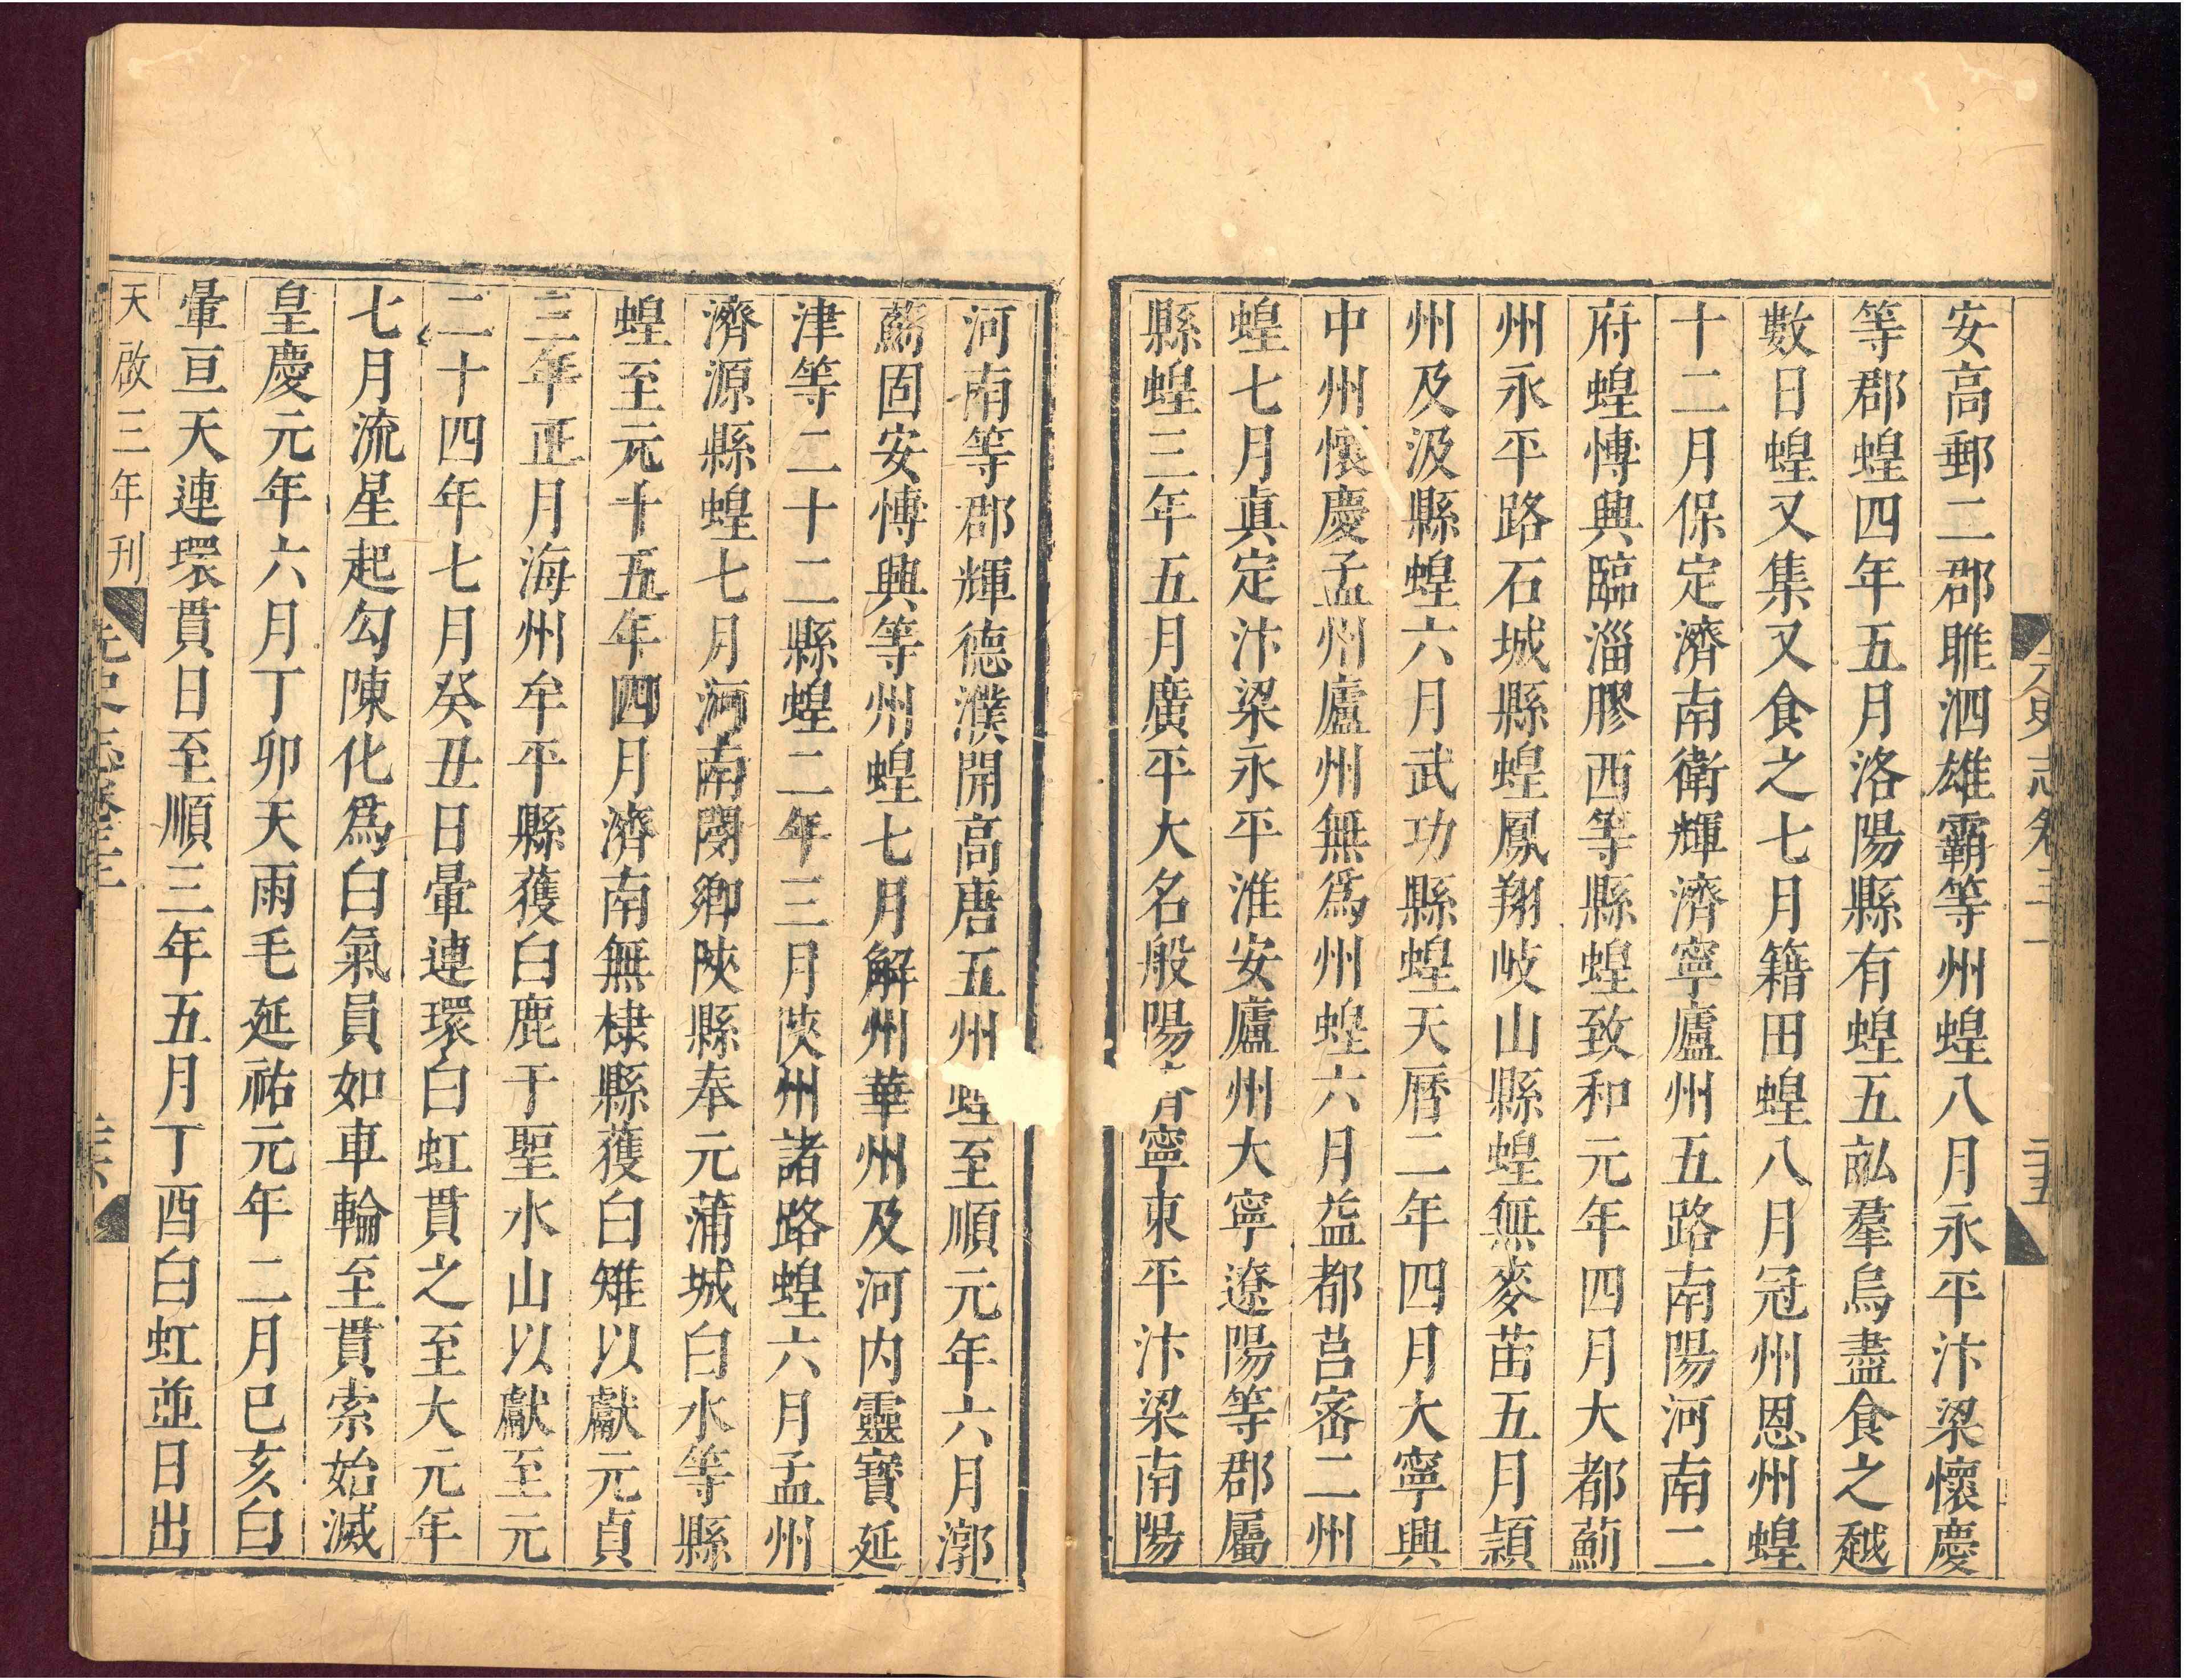 元史志卷三一
二十五
安高郵二郡睢泗雄霸等州蝗八月永平汴梁懷慶
等郡蝗四年五月洛陽縣有蝗五畝羣烏盡食之越
數日蝗又集又食之七月籍田蝗八月冠州恩州蝗
十二月保定濟南衛輝濟寧廬州五路南陽河南二
府蝗愽興臨淄膠西等縣蝗致和元年四月大都薊
州永平路石城縣蝗鳳翔岐山縣蝗無麥苗五月頴
州及汲縣蝗六月武功縣蝗天曆二年四月大寧興
中州懷慶孟州廬州無爲州蝗六月益都莒宻二州
蝗七月真定汴梁永平淮安廬州大寧遼陽等郡屬
縣蝗三年五月廣平大名般陽寧東平汴梁南陽
河南等郡輝德濮開高唐五州蝗至順元年六月漷
薊固安愽興等州蝗七月解州華州及河内靈寶延
津等二十二縣蝗二年三月陜州諸路蝗六月孟州
濟源縣蝗七月河南閿鄉陜縣奉元蒲城白水等縣
蝗至元十五年四月濟南無棣縣獲白雉以獻元貞
三年正月海州牟平縣獲白鹿于聖水山以獻至元
二十四年七月癸丑日暈連環白虹貫之至大元年
七月流星起勾陳化爲白氣員如車輪至貫索始滅
皇慶元年六月丁卯天雨毛延祐元年二月巳亥白
暈亘天連環貫日至順三年五月丁酉白虹並日出
天啟三年刊
元史志卷三十